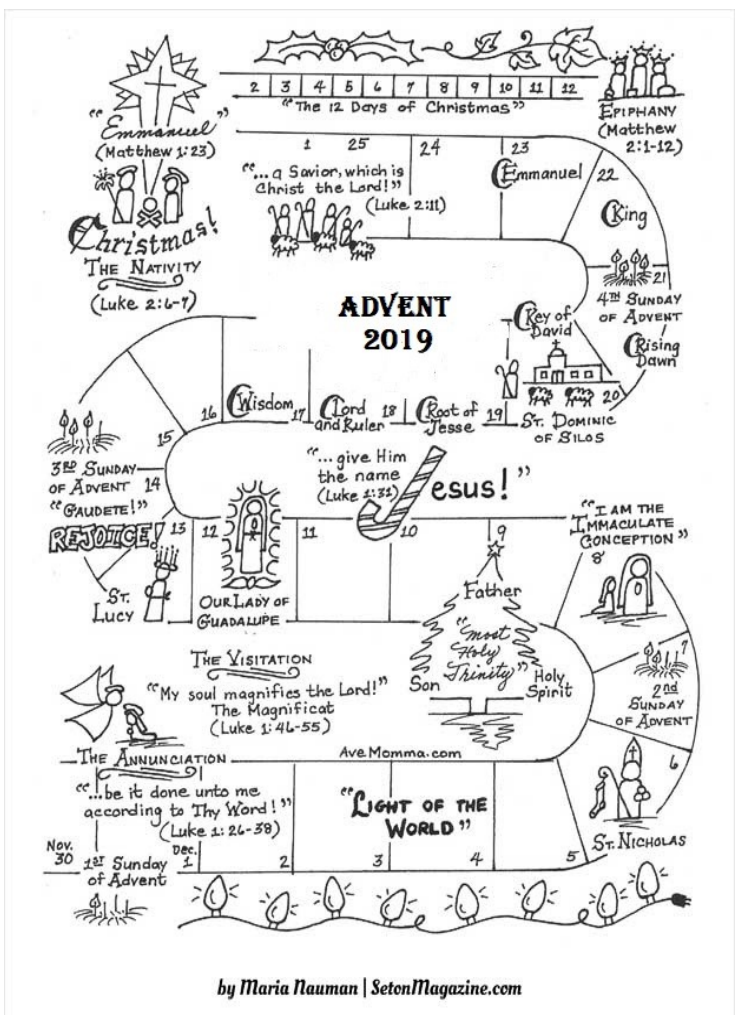 2 3 4 5 6 7 8 9 10 11 12
"The 12 Days of Christmas"
EPIPHANY
(Matthew
2:1-12)
"Emmanuel"
(Matthew 1:23)
Christmas!
THE NATIVITY
(Luke 2:6-7)
1 25 24 23 22
"... a Savior, which is
Christ the Lord!"
(Luke 2:11)
Emmanuel
King
21
4TH SUNDAY
OF ADVENT
Rising
Dawn
ADVENT
2019
Key of
David
20
ST. DOMINIC
OF SILOS
16 Wisdom 17 Lord
and Ruler 18 Root of
Jesse 19
15
3RD SUNDAY
OF ADVENT 14
"GAUDETE!"
REJOICE! 13
ST.
LUCY
"... give Him
the name
(Luke 1:31)
Jesus!"
12 11 10 9
OUR LADY OF
GUADALUPE
"I AM THE
IMMACULATE
CONCEPTION"
8
Father
"Most
Holy
Trinity"
Son
Holy
Spirit
7
2nd
SUNDAY
OF ADVENT
THE VISITATION
"My soul magnifies the Lord!"
The Magnificat
(Luke 1:46-55)
AveMomma.com
6
ST. NICHOLAS
THE ANNUNCIATION
"...be it done unto me
according to Thy Word!"
(Luke 1:26-38)
"LIGHT OF THE
WORLD"
Nov.
30
1ST Sunday
of Advent
Dec.
1 2 3 4 5
by Maria Nauman | SetonMagazine.com